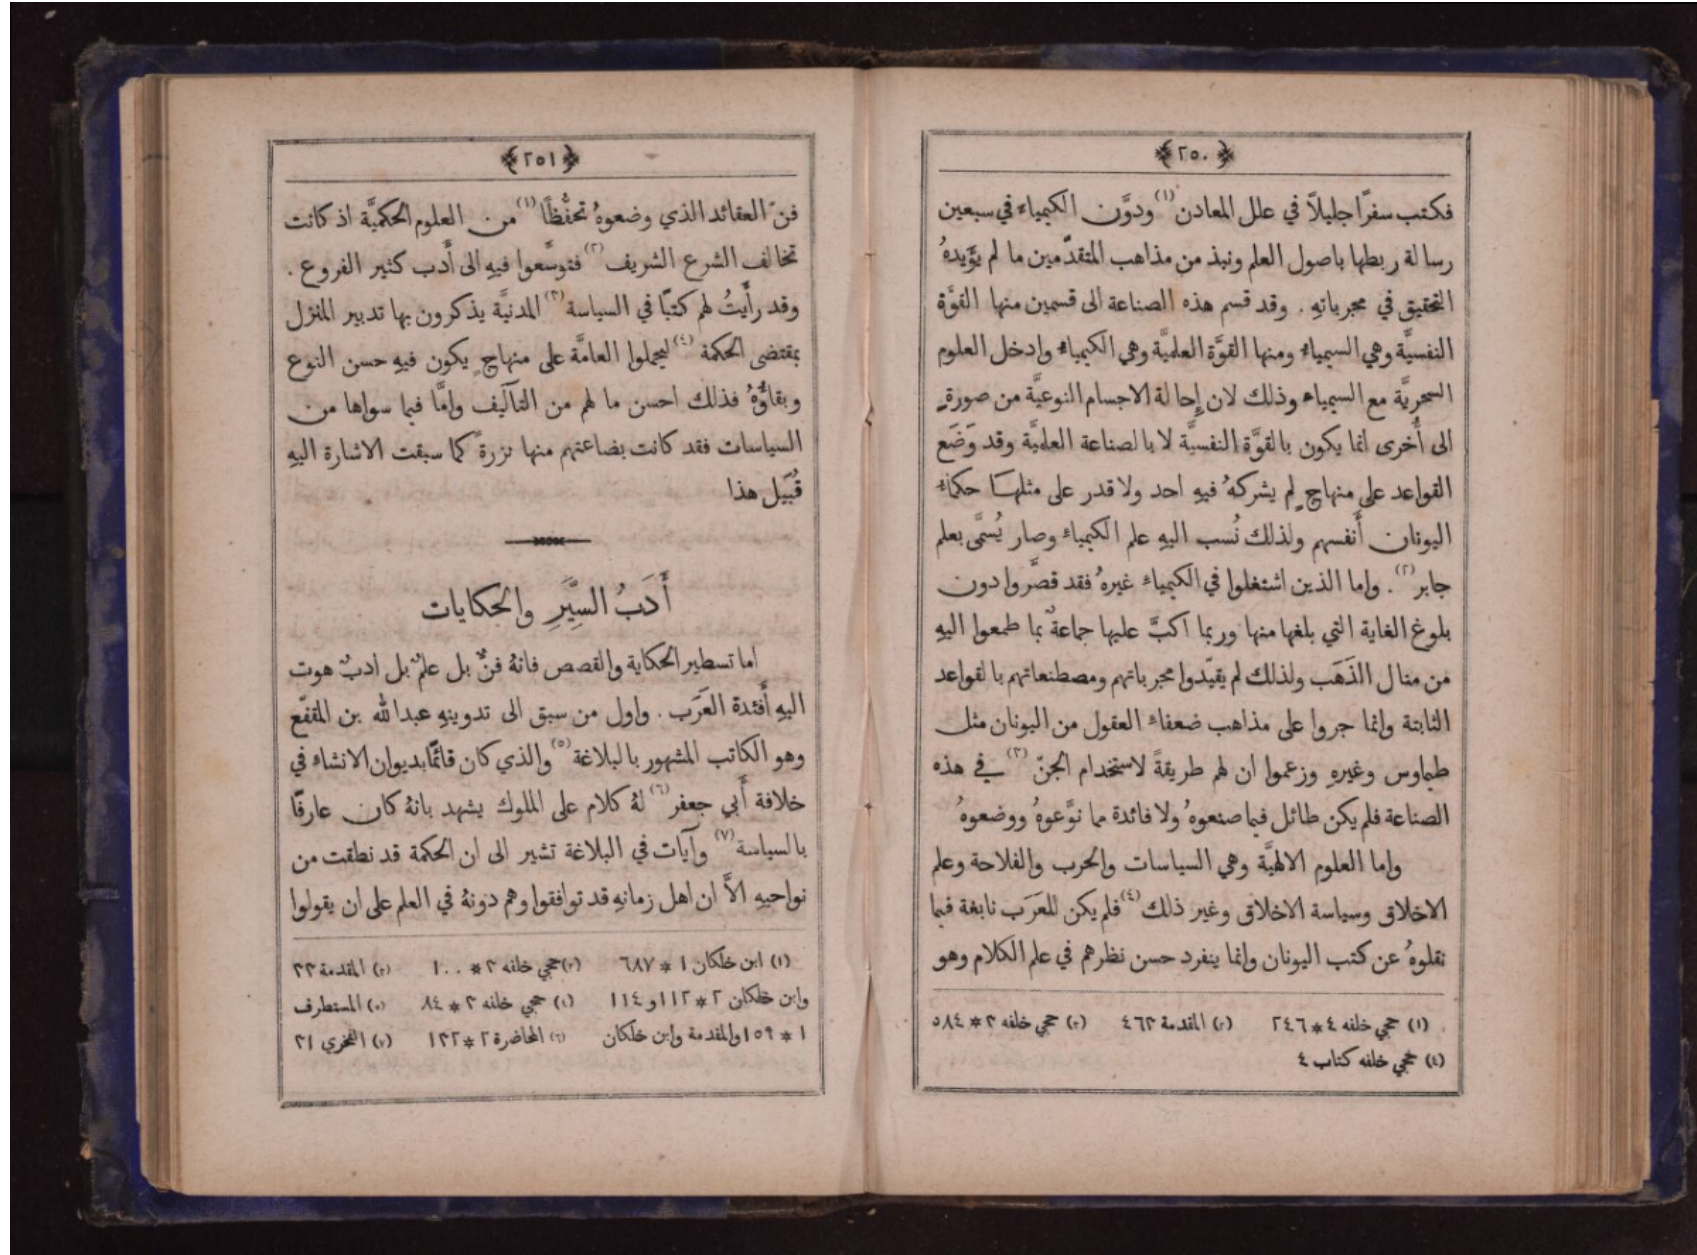 ﴿٢٥٠﴾
فكتب سفرًا جليلاً في علل المعادن (١) ودوَّن الكيمياء في سبعين
رسالة ربطها باصول العلم ونبذ من مذاهب المتقدّمين ما لم يؤَيدهُ
التحقيق في مجرباتهِ . وقد قسم هذه الصناعة الى قسمين منها القوَّة
النفسيَّة وهي السيمياءُ ومنها القوَّة العلميَّة وهي الكيمياءُ وادخل العلوم
السحريَّة مع السيمياء وذلك لان إِحالة الاجسام النوعيَّة من صورةٍ
الى أُخرى انما يكون بالقوَّة النفسيَّة لا بالصناعة العلميَّة وقد وَضَع
القواعد على منهاجٍ لم يشركهُ فيهِ احد ولا قدر على مثلها حكماءُ
اليونان أَنفسهم ولذلك نُسب اليهِ علم الكيمياء وصار يُسمَّى بعلم
جابر (٢) . واما الذين اشتغلوا في الكيمياء غيرهُ فقد قصَّروا دون
بلوغ الغاية التي بلغها منها وربما اكبَّ عليها جماعةٌ بما طمعوا اليهِ
من منال الذَهَب ولذلك لم يقيّدوا مجرباتهم ومصطنعاتهم بالقواعد
الثابتة وانما جروا على مذاهب ضعفاء العقول من اليونان مثل
طيماوس وغيرهِ وزعموا ان لهم طريقةً لاستخدام الجنّ (٣) في هذه
الصناعة فلم يكن طائل فيما صنعوهُ ولا فائدة مما نوَّعوهُ ووضعوهُ
واما العلوم الالهيَّة وهي السياسات والحرب والفلاحة وعلم
الاخلاق وسياسة الاخلاق وغير ذلك (٤) فلم يكن للعَرَب نابغة فيما
نقلوهُ عن كتب اليونان وانما ينفرد حسن نظرهم في علم الكلام وهو
(١) حجي خلفه ٤ * ٢٤٦ (٢) المقدمة ٤٦٣ (٣) حجي خلفه ٣ * ٥٨٤
(٤) حجي خلفه كتاب ٤
﴿٢٥١﴾
فنّ العقائد الذي وضعوهُ تحفُّظًا (١) من العلوم الحكميَّة اذ كانت
تخالف الشرع الشريف (٢) فتوسَّعوا فيهِ الى أَدب كثير الفروع .
وقد رأَيتُ لهم كتبًا في السياسة (٣) المدنيَّة يذكرون بها تدبير المنزل
بمقتضى الحكمة (٤) ليحملوا العامَّة على منهاجٍ يكون فيهِ حسن النوع
وبقاؤُهُ فذلك احسن ما لهم من التآليف وامَّا فيما سواها من
السياسات فقد كانت بضاعتهم منها نزرةً كما سبقت الاشارة اليهِ
قُبَيل هذا
أَدَبُ السِّيَرِ والحكايات
اما تسطير الحكاية والقصص فانهُ فنٌّ بل علمٌ بل ادبٌ هوت
اليهِ أَفئدة العَرَب . واول من سبق الى تدوينهِ عبدالله بن المقفّع
وهو الكاتب المشهور بالبلاغة (٥) والذي كان قائمًا بديوان الانشاء في
خلافة أَبي جعفر (٦) لهُ كلام على الملوك يشهد بانهُ كان عارفًا
بالسياسة (٧) وآيات في البلاغة تشير الى ان الحكمة قد نطقت من
نواحيهِ الاَّ ان اهل زمانهِ قد توافقوا وهم دونهُ في العلم على ان يقولوا
(١) ابن خلكان ١ * ٦٨٧ (٢) حجي خلفه ٣ * ١٠٠ (٣) المقدمة ٣٣
وابن خلكان ٢ * ١١٢ و ١١٤ (٤) حجي خلفه ٣ * ٨٤ (٥) المستطرف
١ * ١٥٩ والمقدمة وابن خلكان (٦) المحاضرة ٢ * ١٣٢ (٧) الفخري ٣١